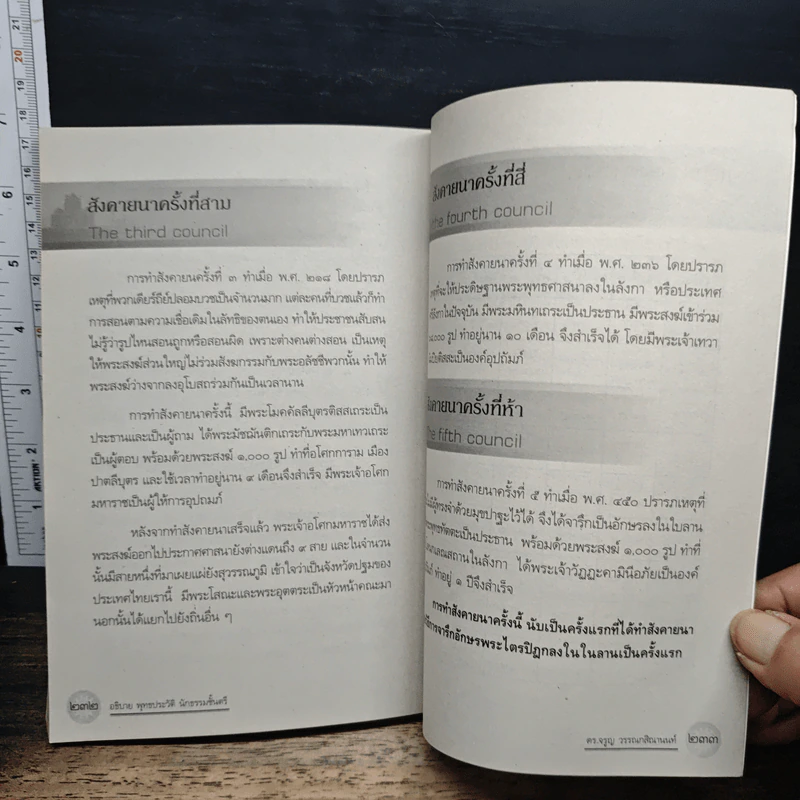 สังคายนาครั้งที่สาม
The third council
การทำสังคายนครั้งที่ ๓ ทำเมื่อ พ.ศ. ๒๑๘ โดยปรารภ
เหตุที่พวกเดียร์ถีย์ปลอมบวชเป็นจำนวนมาก แต่ละคนที่บวชแล้วก็ทำ
การสอนตามความเชื่อเดิมในลัทธิของตนเอง ทำให้ประชาชนสับสน
ไม่รู้ว่ารูปไหนสอนถูกหรือสอนผิด เพราะต่างคนต่างสอน เป็นเหตุ
ให้พระสงฆ์ส่วนใหญ่ไม่ร่วมสังฆกรรมกับพระอลัชชีพวกนั้น ทำให้
พระสงฆ์ว่างจากลงอุโบสถร่วมกันเป็นเวลานาน
การทำสังคายนาครั้งนี้ มีพระโมคคัลลีบุตรติสสเถระเป็น
ประธานและเป็นผู้ถาม ได้พระมัชฌันติกเถระกับพระมหาเทวเถระ
เป็นผู้ตอบ พร้อมด้วยพระสงฆ์ ๑,๐๐๐ รูป ทำที่อโศการาม เมือง
ปาตลีบุตร และใช้เวลาทำอยู่นาน ๙ เดือนจึงสำเร็จ มีพระเจ้าอโศก
มหาราชเป็นผู้ให้การอุปถมภ์
หลังจากทำสังคายนาเสร็จแล้ว พระเจ้าอโศกมหาราชได้ส่ง
พระสงฆ์ออกไปประกาศศาสนายังต่างแดนถึง ๙ สาย และในจำนวน
นั้นมีสายหนึ่งที่มาเผยแผ่ยังสุวรรณภูมิ เข้าใจว่าเป็นจังหวัดปฐมของ
ประเทศไทยเรานี้ มีพระโสณะและพระอุตตระเป็นหัวหน้าคณะมา
นอกนั้นได้แยกไปยังถิ่นอื่น ๆ
๒๓๒ อธิบาย พุทธประวัติ นักธรรมชั้นตรี
สังคายนาครั้งที่สี่
the fourth council
การทำสังคายนาครั้งที่ ๔ ทำเมื่อ พ.ศ. ๒๓๖ โดยปรารภ
เหตุที่จะให้ประดิษฐานพระพุทธศาสนาลงในลังกา หรือประเทศ
ในปัจจุบัน มีพระมหินทเถระเป็นประธาน มีพระสงฆ์เข้าร่วม
รูป ทำอยู่นาน ๑๐ เดือน จึงสำเร็จได้ โดยมีพระเจ้าเทวา
เป็นองค์อุปถัมภ์
สังคายนาครั้งที่ห้า
the fifth council
การทำสังคายนาครั้งที่ ๕ ทำเมื่อ พ.ศ. ๔๕๐ ปรารภเหตุที่
ผู้ทรงจำด้วยมุขปาฐะไว้ได้ จึงได้จารึกเป็นอักษรลงในใบลาน
เป็นประธาน พร้อมด้วยพระสงฆ์ ๑,๐๐๐ รูป ทำที่
ในลังกา ได้พระเจ้าวัฏฏะคามินีอภัยเป็นองค์
ทำอยู่ ๑ ปีจึงสำเร็จ
การทำสังคายนาครั้งนี้ นับเป็นครั้งแรกที่ได้ทำสังคายนา
การจารึกอักษรพระไตรปิฎกลงในใบลานเป็นครั้งแรก
ดร.จรูญ วรรณกสิณานนท์ ๒๓๓